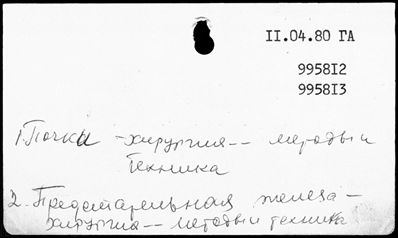 II.04.80 ГА
9958I2
9958I3
1 Почки - хирургия -- методы и
техника
2. Предстательная железа -
хирургия -- методы и техника